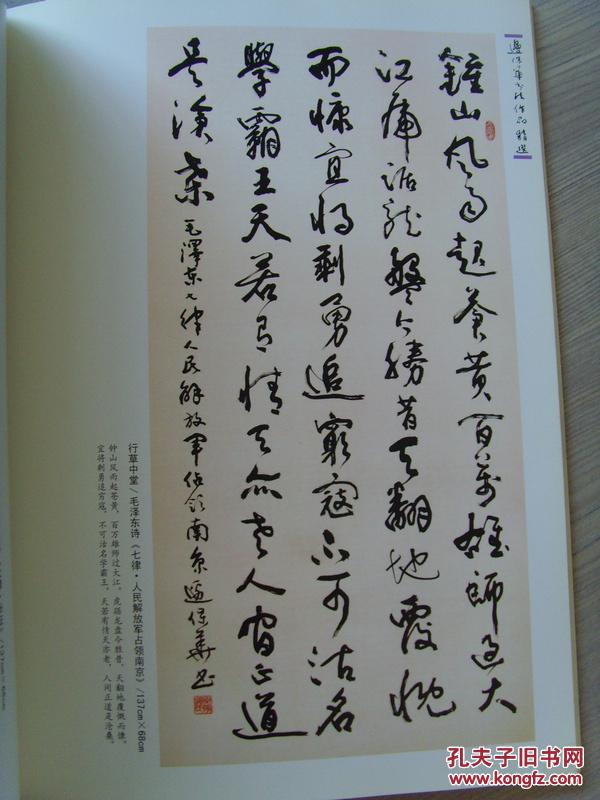 邊保華书法作品精选
鐘山风雨起蒼黄百萬雄師过大
江虎踞龙盤今勝昔天翻地覆慨
而慷宜将剩勇追窮寇不可沽名
學霸王天若有情天亦老人间正道
是滄桑毛澤東七律人民解放军佔领南京邊保華书
行草中堂/毛泽东诗《七律·人民解放军占领南京》/137cm×68cm
钟山风雨起苍黄，百万雄师过大江。虎踞龙盘今胜昔，天翻地覆慨而慷。
宜将剩勇追穷寇，不可沽名学霸王。天若有情天亦老，人间正道是沧桑。
孔夫子旧书网
www.kongfz.com